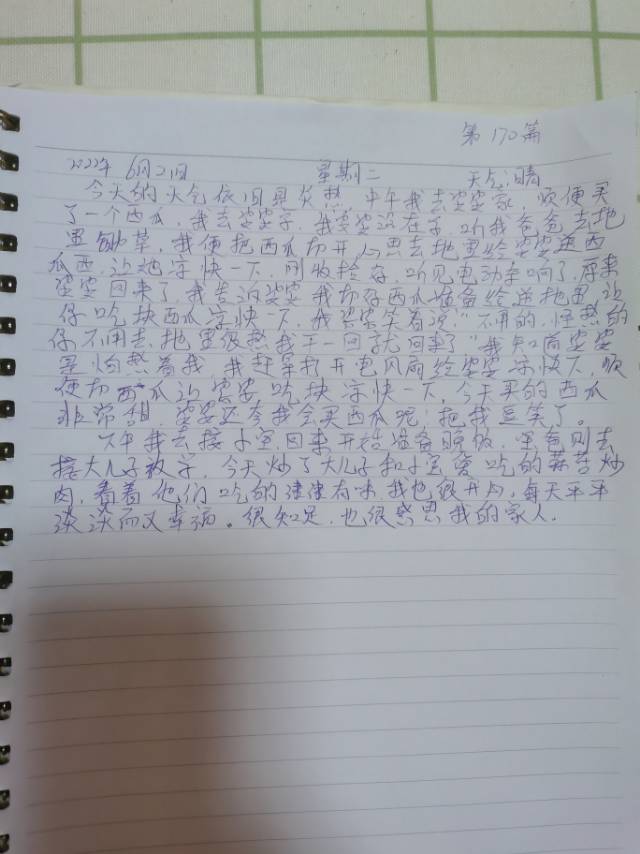 第170篇
2022年 6月21日 星期二 天气:晴
今天的天气依旧是炎热,中午我去婆婆家,顺便买
了一个西瓜,我去婆婆子,我婆婆没在子,听我爸爸去地
里锄草,我便把西瓜切开,心思去地里给婆婆送西
瓜西,让她凉快一下,刚收拾好,听见电动车响了,原来
婆婆回来了,我告诉婆婆我切好西瓜准备给送地里,让
你吃块西瓜凉快一下,我婆婆笑着说:"不用的,怪热的
你不用去,地里很热我干一回就回来了"我知道婆婆
是怕热着我,我赶紧打开电风扇给婆婆凉快下,顺
便切西瓜让婆婆吃块凉快一下,今天买的西瓜
非常甜,婆婆还夸我会买西瓜呢,把我逗笑了。
下午我去接小宝,回来开始准备晚饭,宝爸则去
接大儿子放学,今天炒了大儿子和小宝爱吃的蒜苔炒
肉,看着他们吃的津津有味,我也很开心,每天平平
淡淡而又幸福。很知足,也很感恩我的家人.